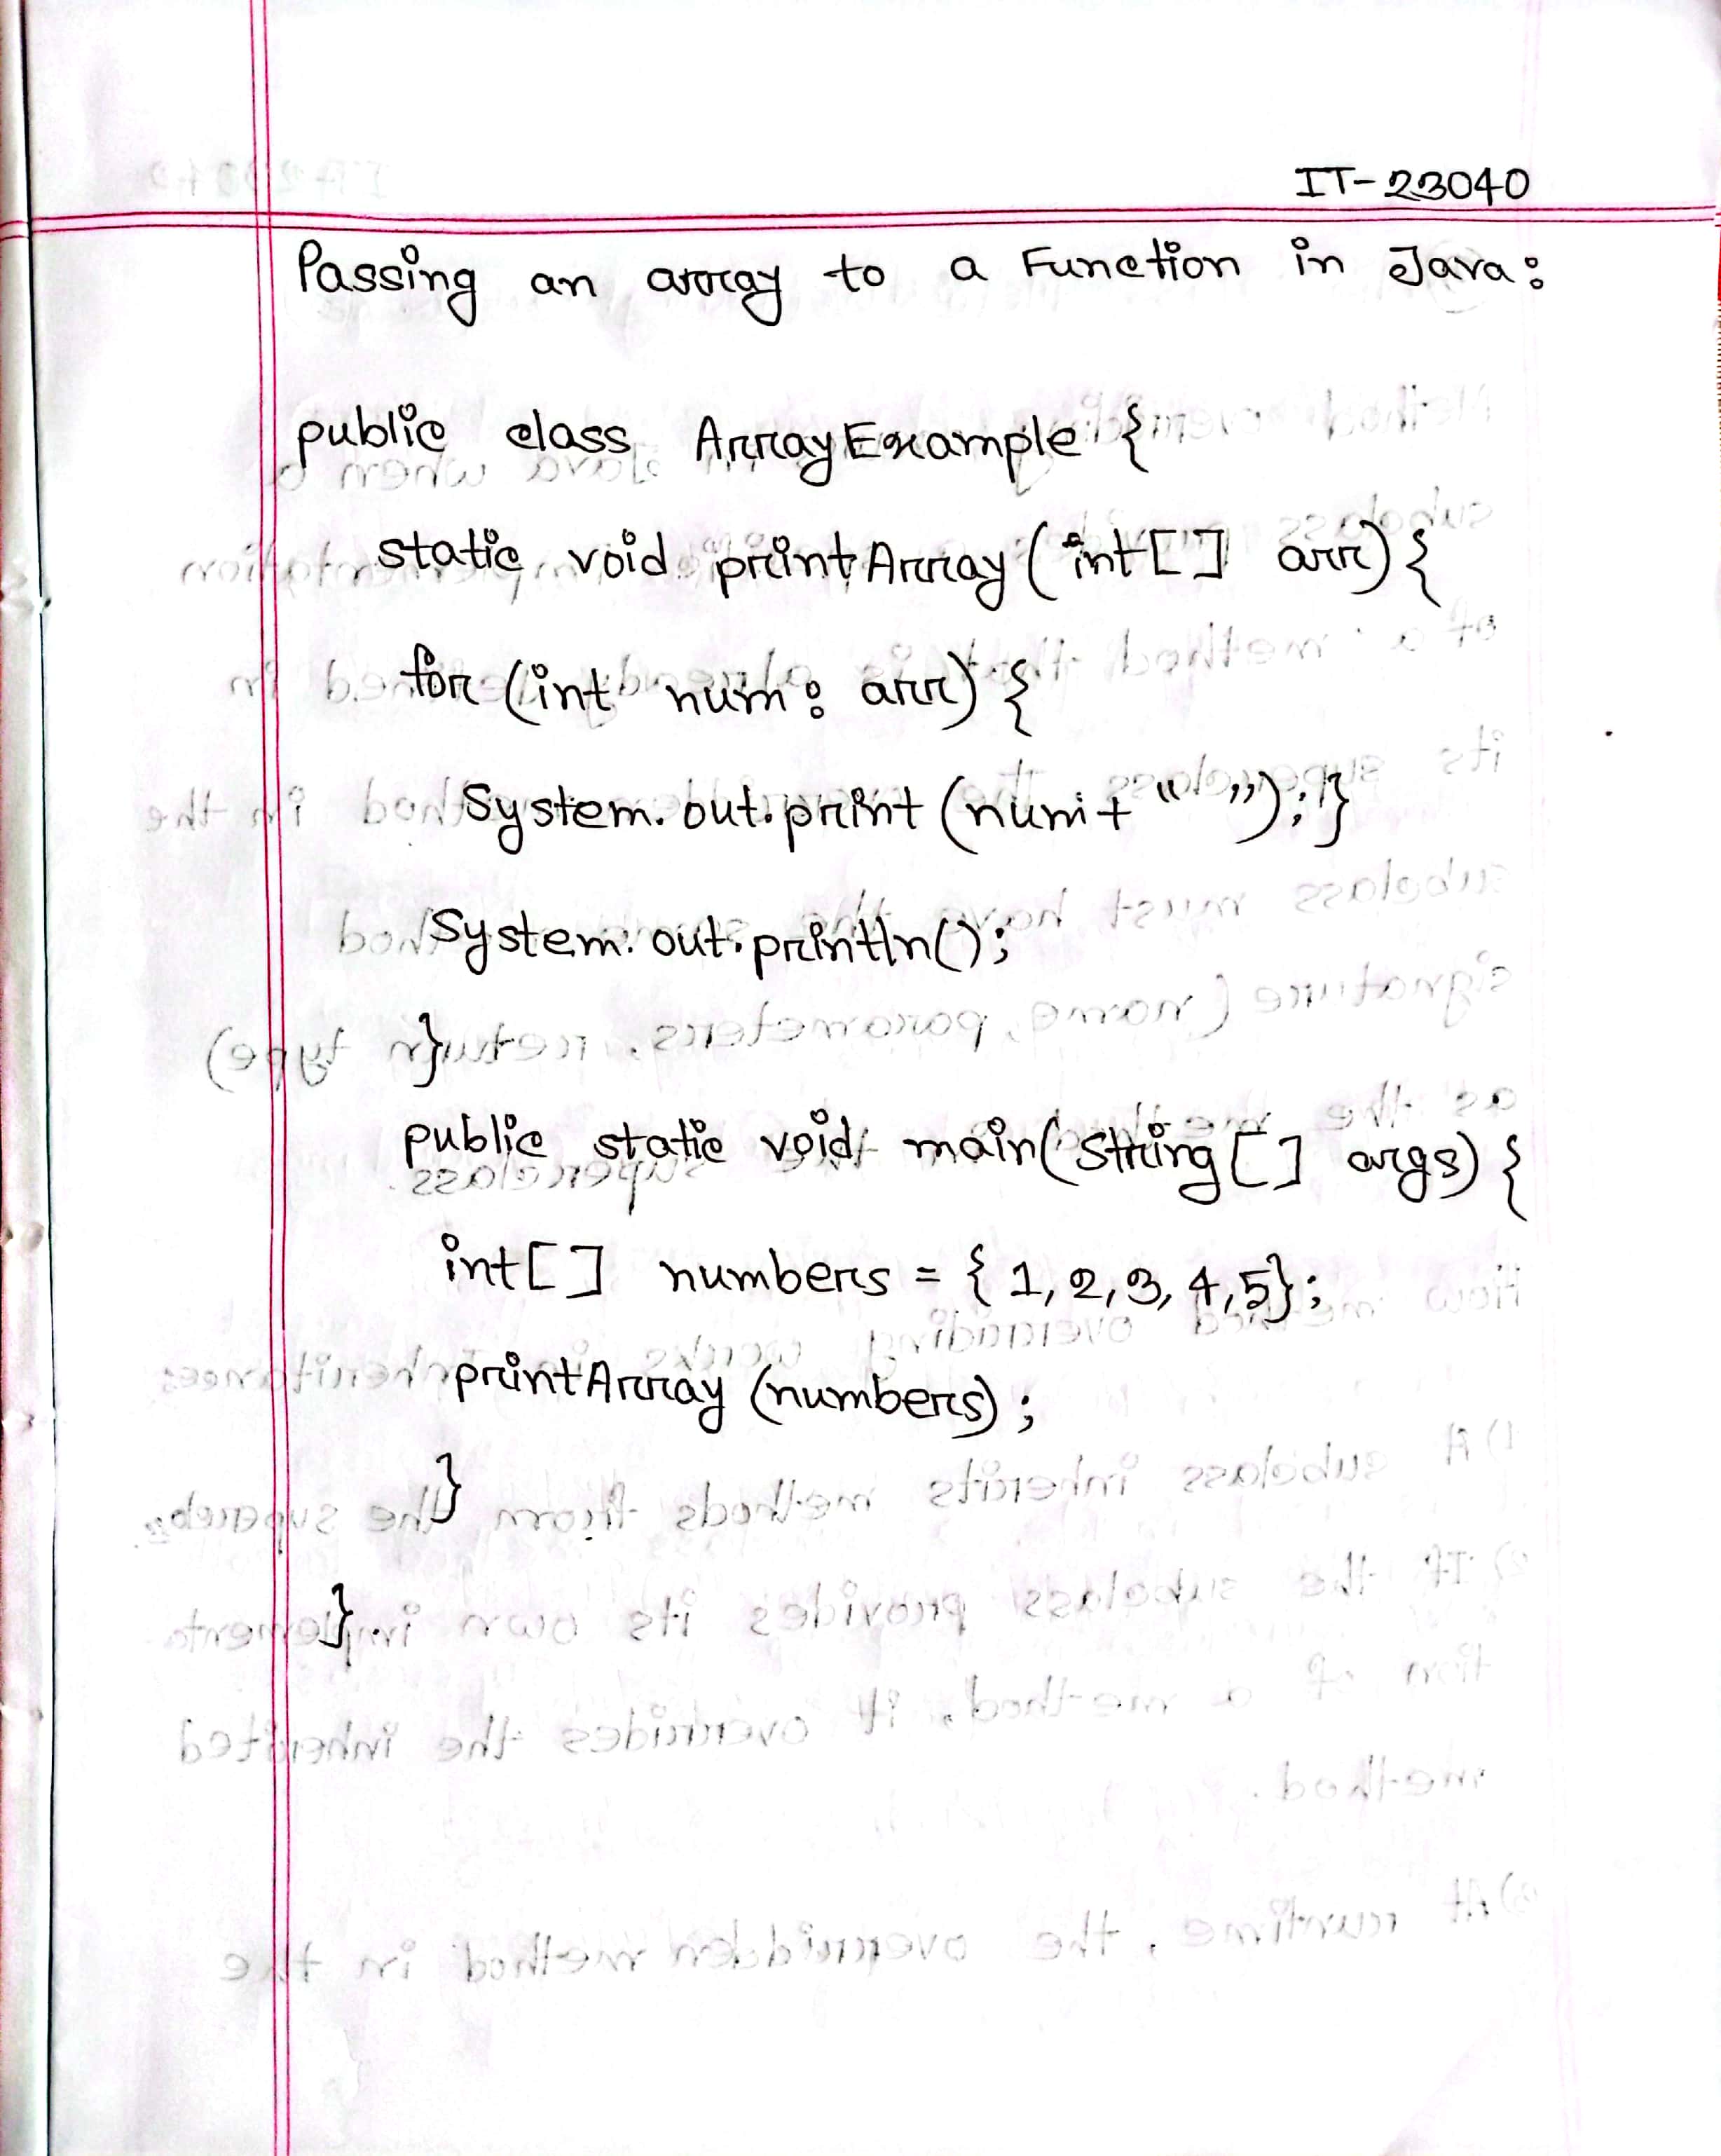 IT-23040
Passing an array to a Function in Java:
public class ArrayExample {
static void printArray (int[] arr) {
for (int num: arr) {
System.out.print (num + " "); }
System.out.println();
}
public static void main(String[] args) {
int[] numbers = { 1, 2, 3, 4, 5};
printArray (numbers);
}
}